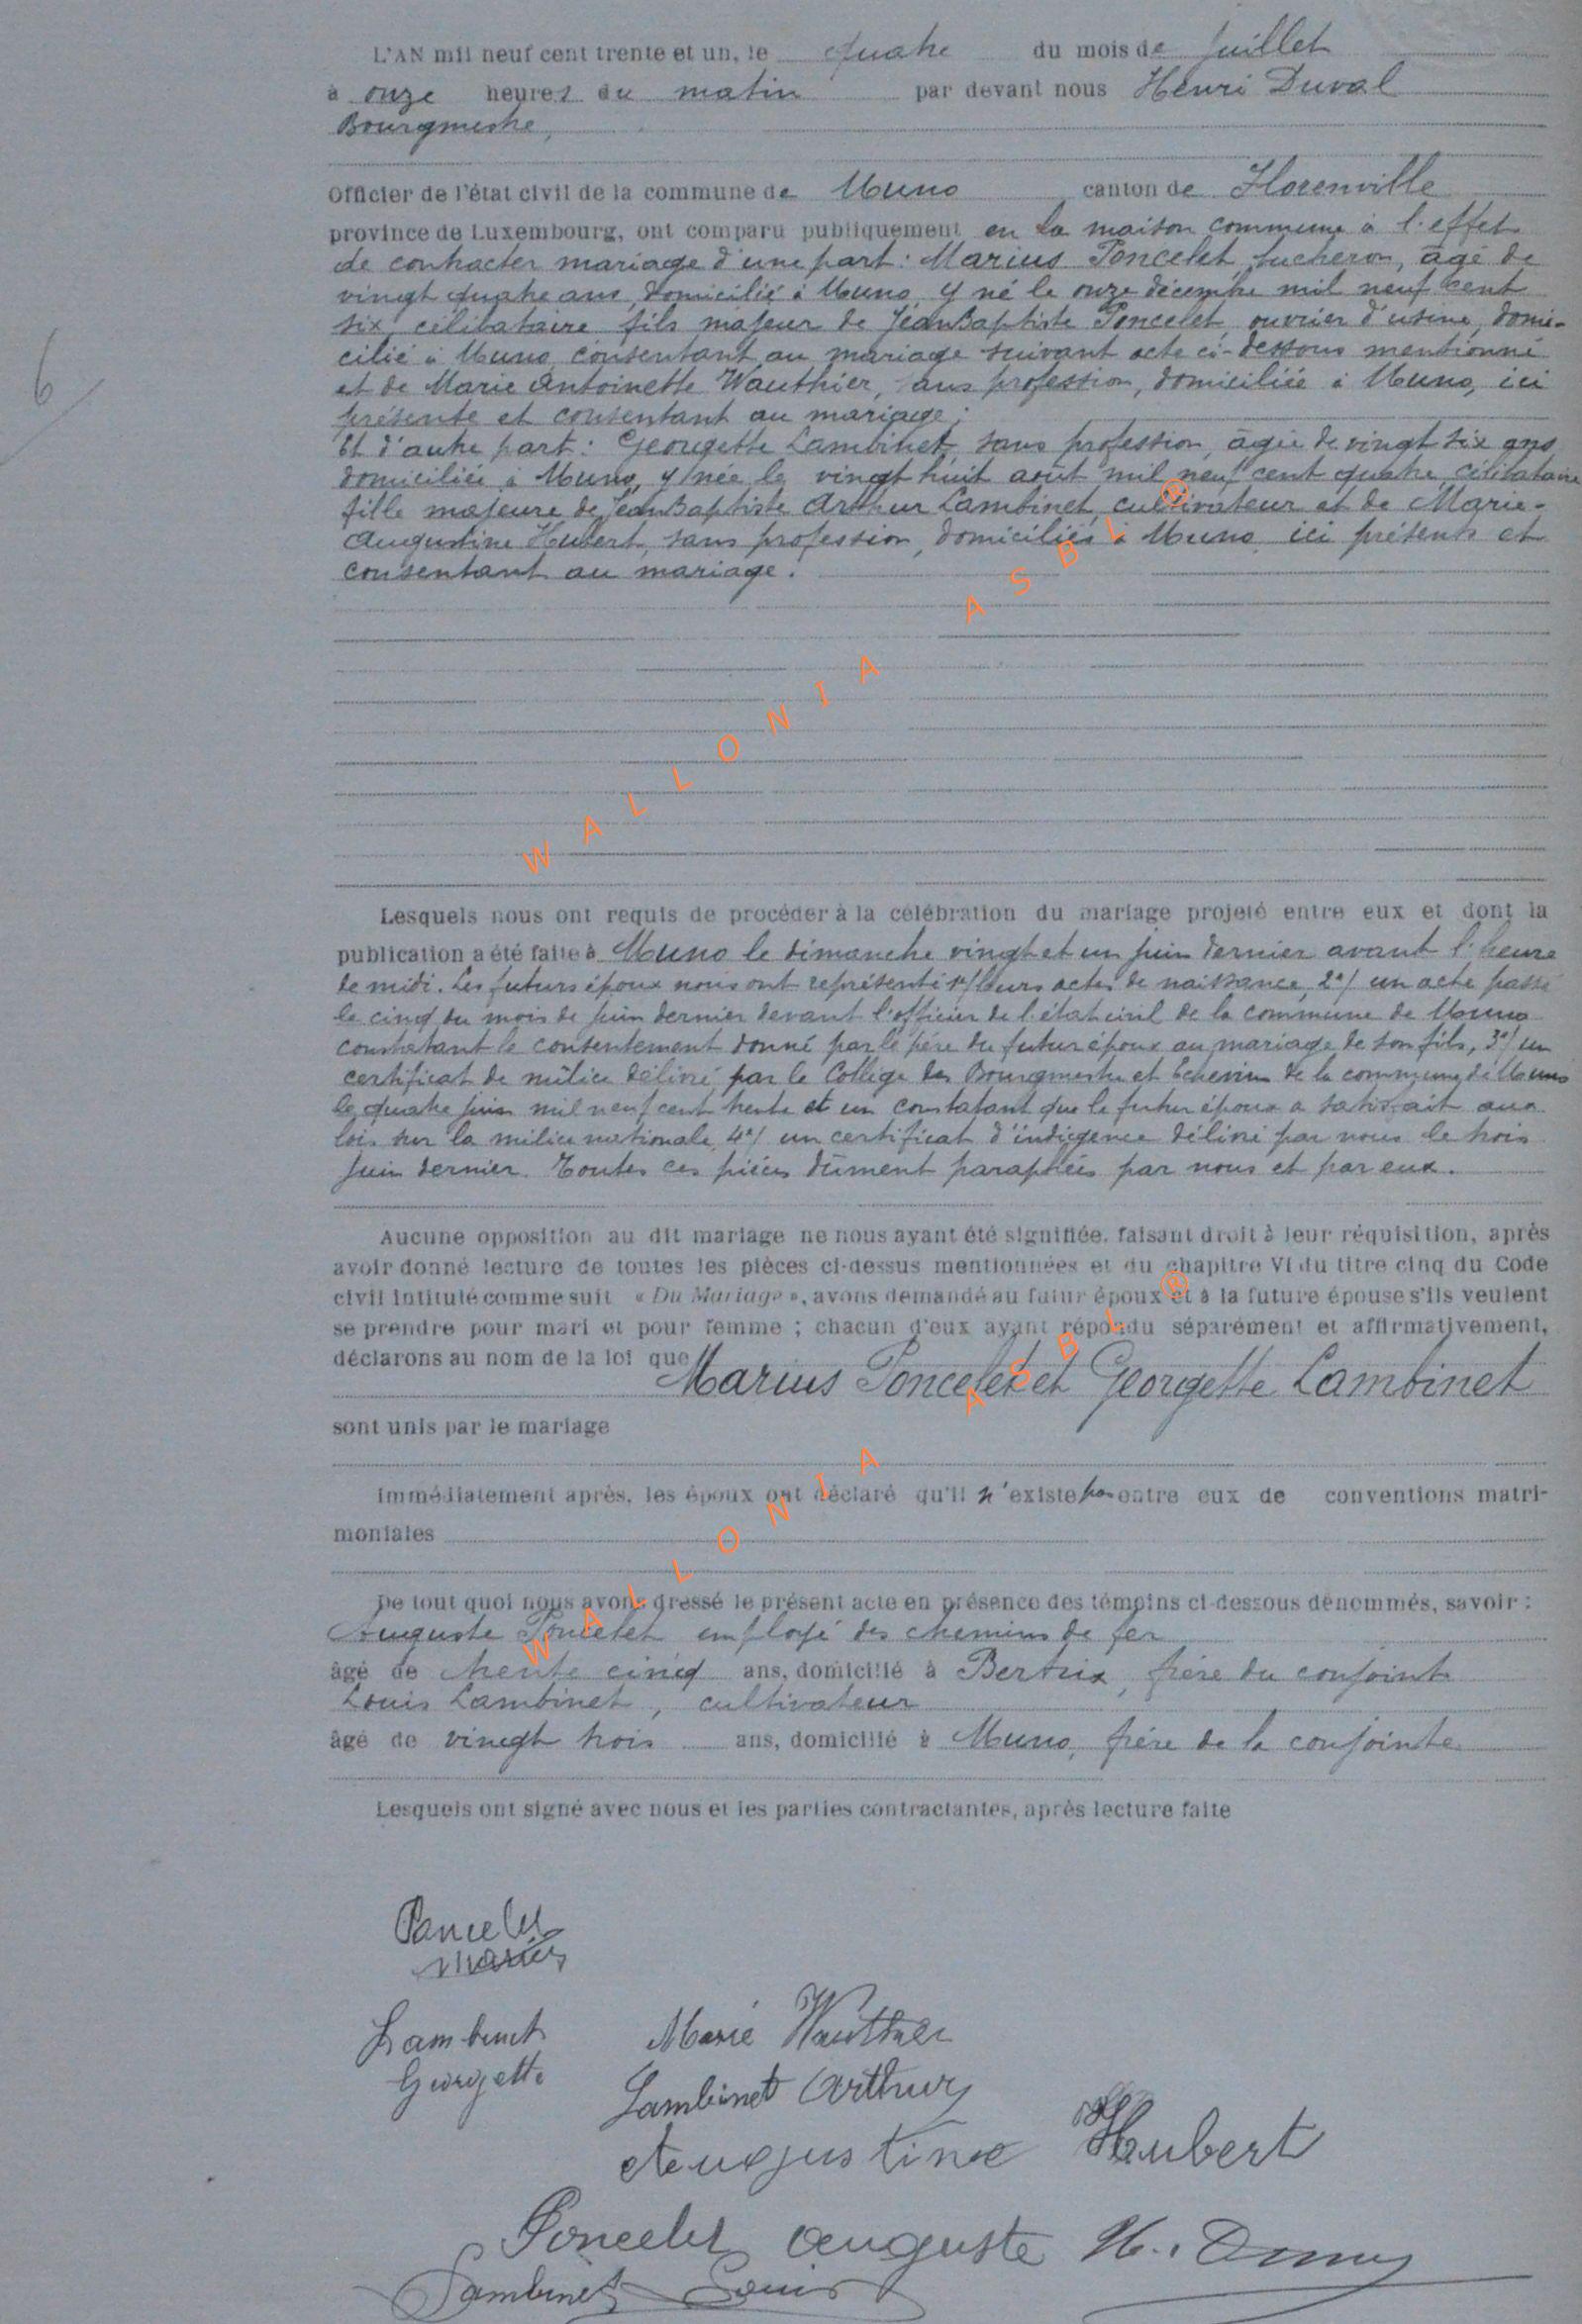 L'AN mil neuf cent trente et un, le quatre du mois de juillet
à onze heures du matin par devant nous Henri Duval
Bourgmestre,
Officier de l'état civil de la commune de Muno canton de Florenville
province de Luxembourg, ont comparu publiquement en la maison commune à l'effet
de contracter mariage d'une part : Marius Poncelet, bucheron, âgé de
vingt quatre ans, domicilié à Muno, y né le onze décembre mil neuf cent
six, célibataire fils majeur de Jean Baptiste Poncelet ouvrier d'usine, domi-
cilié à Muno, consentant au mariage suivant acte ci-dessous mentionné
et de Marie Antoinette Wauthier, sans profession, domiciliée à Muno, ici
présente et consentant au mariage ;
Et d'autre part : Georgette Lambinet, sans profession, âgée de vingt six ans,
domiciliée à Muno, y née le vingt huit août mil neuf cent quatre célibataire
fille majeure de Jean Baptiste Arthur Lambinet, cultivateur et de Marie-
Augustine Hubert, sans profession, domiciliés à Muno, ici présents et
consentant au mariage.
WALLONIA ASBL ®
Lesquels nous ont requis de procéder à la célébration du mariage projeté entre eux et dont la
publication a été faite à Muno le dimanche vingt et un juin dernier avant l'heure
de midi. Les futurs époux nous ont représenté 1°/ leurs actes de naissance, 2°/ un acte passé
le cinq du mois de juin dernier devant l'officier de l'état civil de la commune de Muno
constatant le consentement donné par le père du futur époux au mariage de son fils, 3°/ un
certificat de milice délivré par le Collège des Bourgmestre et Echevins de la commune de Muno
le quatre juin mil neuf cent trente et un constatant que le futur époux a satisfait aux
lois sur la milice nationale, 4°/ un certificat d'indigence délivré par nous le trois
juin dernier. Toutes ces pièces dûment paraphées par nous et par eux.
Aucune opposition au dit mariage ne nous ayant été signifiée, faisant droit à leur réquisition, après
avoir donné lecture de toutes les pièces ci-dessus mentionnées et du chapitre VI du titre cinq du Code
civil intitulé comme suit « Du Mariage », avons demandé au futur époux et à la future épouse s'ils veulent
se prendre pour mari et pour femme ; chacun d'eux ayant répondu séparément et affirmativement,
déclarons au nom de la loi que Marius Poncelet et Georgette Lambinet
sont unis par le mariage
Immédiatement après, les époux ont déclaré qu'il n'existe pas entre eux de conventions matri-
moniales
WALLONIA ASBL ®
De tout quoi nous avons dressé le présent acte en présence des témoins ci-dessous dénommés, savoir :
Auguste Poncelet employé des chemins de fer
âgé de trente cinq ans, domicilié à Bertrix, frère du conjoint
Louis Lambinet, cultivateur
âgé de vingt trois ans, domicilié à Muno, frère de la conjointe
Lesquels ont signé avec nous et les parties contractantes, après lecture faite
6
Poncelet
Marius
Lambinet
Georgette
Marie Wauthier
Lambinet Arthur
Augustine Hubert
Poncelet Auguste H. Duval
Lambinet Louis